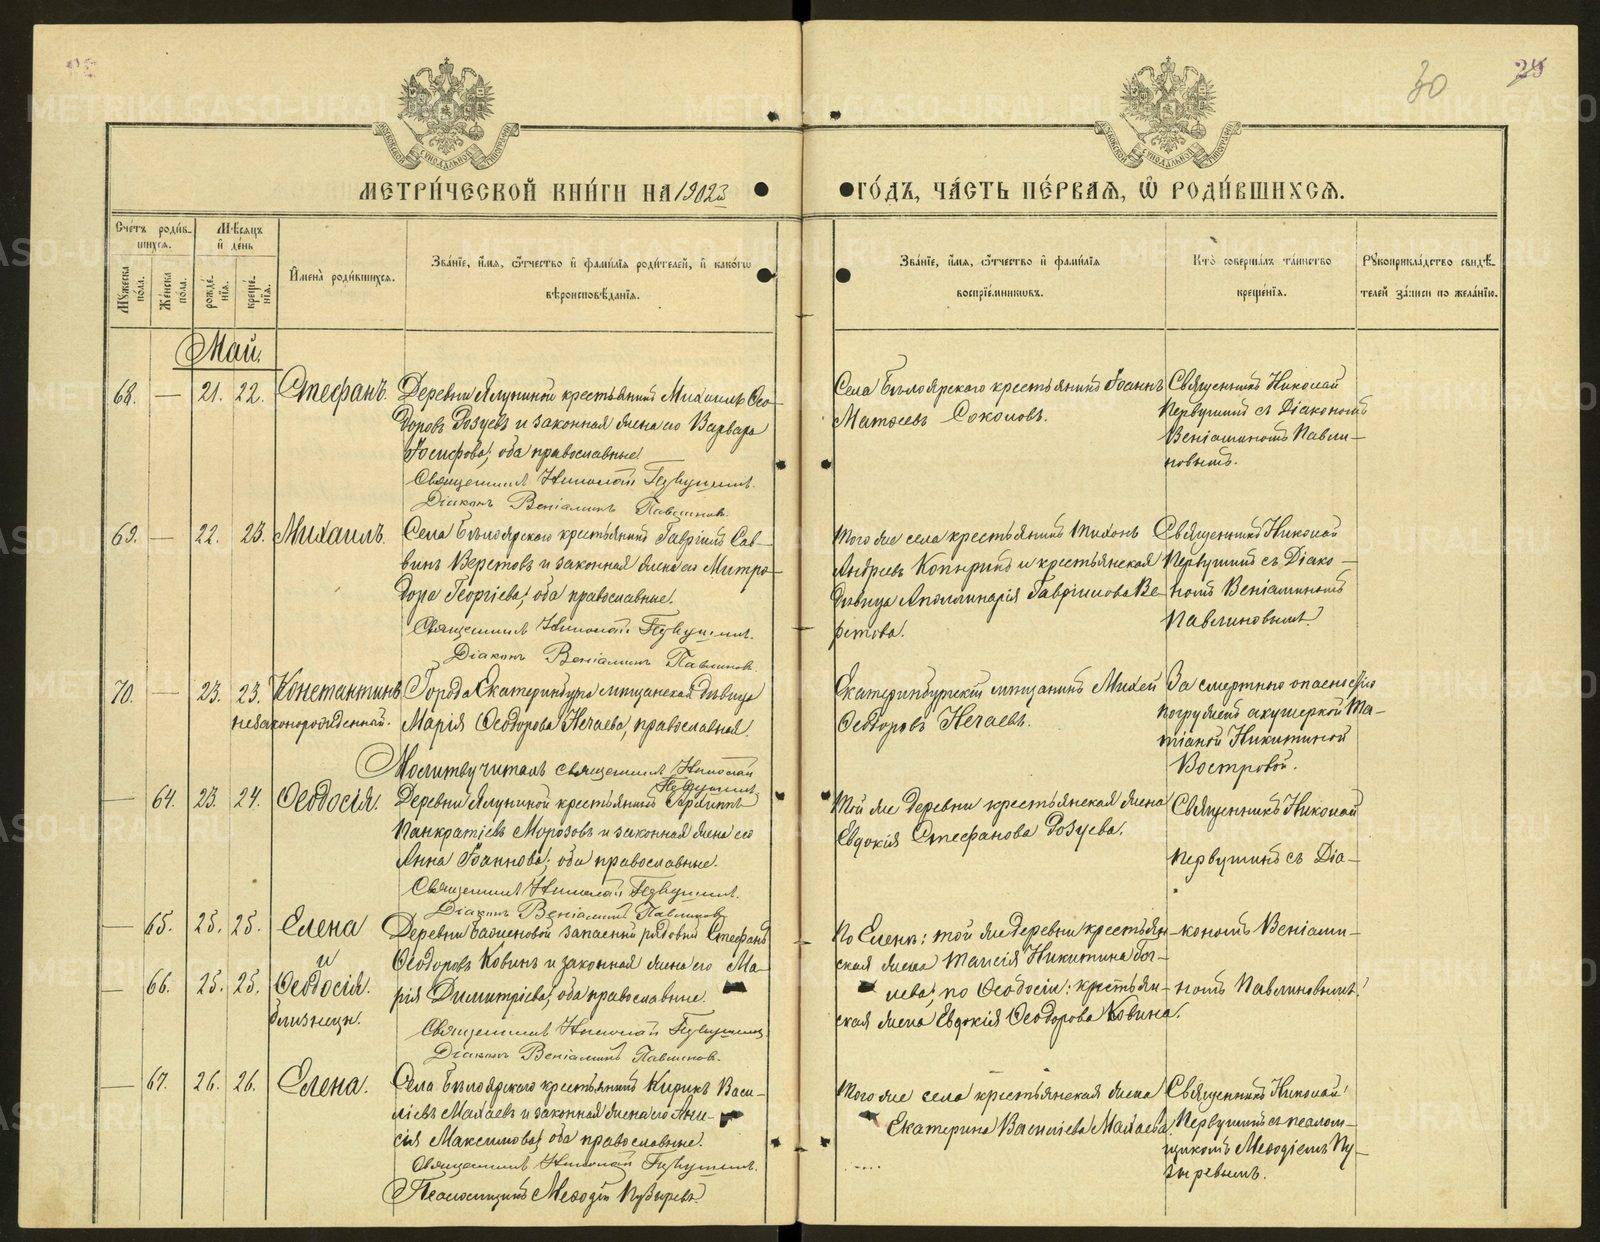 30
МЕТРИ́ЧЕСКОЙ КНИ́ГИ НА 1902 ГО́ДЪ, ЧА́СТЬ ПЕ́РВАѦ, Ѡ РОДИ́ВШИХСѦ.
Счетъ роди́вшихсѧ.
Мѣсѧцъ и день
Мꙋжеска пола.
Женска пола.
рождéнїѧ.
крещéнїѧ.
И́мена̀ роди́вшихсѧ.
Зва́нїе, и́мѧ, ѻ́тчество и фами́лїѧ роди́телей, и како́гѡ
вѣроисповѣ́данїѧ.
Зва́нїе, и́мѧ, ѻ́тчество и фами́лїѧ
воспрїе́мникѡвъ.
Кто̀ соверши́лъ та́инство
креще́нїѧ.
Рꙋкоприкла́дство свидѣ́-
телей за́писи по жела́нїю.
Май.
68. — 21. 22. Стефанъ.
Деревни Ялуниной крестьянинъ Михаилъ Ѳео-
доровъ Дозуевъ и законная жена его Варвара
Іосифова; оба православные.
Священникъ Николай Первушинъ.
Діаконъ Веніаминъ Павлиновъ.
Села Бѣлоярского крестьянинъ Іоаннъ
Матѳеевъ Соколовъ.
Священникъ Николай
Первушинъ съ Діакономъ
Веніаминомъ Павли-
новымъ.
69. — 22. 23. Михаилъ.
Села Бѣлоярского крестьянинъ Гавріилъ Сав-
винъ Веретовъ и законная жена его Митро-
дора Георгіева; оба православные.
Священникъ Николай Первушинъ.
Діаконъ Веніаминъ Павлиновъ.
Того же села крестьянинъ Тихонъ
Андреевъ Копыринъ и крестьянская
дѣвица Аполлинарія Гавріилова Ве-
ретова.
Священникъ Николай
Первушинъ съ Діако-
номъ Веніаминомъ
Павлиновымъ.
70. — 23. 23. Константинъ
незаконорожденный.
Города Екатеринбурга мѣщанская дѣвица
Марія Ѳеодорова Нечаева, православная.
Молитву читалъ священникъ Николай
Первушинъ
Екатеринбургскій мѣщанинъ Михей
Ѳеодоровъ Нечаевъ.
За смертною опасностію
погруженъ акушеркой Та-
тіаной Никитиной
Востровой.
— 64. 23. 24. Ѳеодосія.
Деревни Ялуниной крестьянинъ
Панкратіевъ Морозовъ и законная жена его
Анна Іоаннова; оба православные.
Священникъ Николай Первушинъ.
Діаконъ Веніаминъ Павлиновъ
Той же деревни крестьянская жена
Евдокія Стефанова Дозуева.
Священникъ Николай
Первушинъ съ Діа-
— 65. 25. 25. Елена
и
— 66. 25. 25. Ѳеодосія.
близнецы.
Деревни запасный рядовой Стефанъ
Ѳеодоровъ Ковинъ и законная жена его Ма-
рія Димитріева; оба православные.
Священникъ Николай Первушинъ
Діаконъ Веніаминъ Павлиновъ.
По Еленѣ: той же деревни крестьян-
ская жена Таисія Никитина
по Ѳеодосіи: крестьян-
ская жена Евдокія Ѳеодорова Ковина.
кономъ Веніами-
номъ Павлиновымъ.
— 67. 26. 26. Елена.
Села Бѣлоярского крестьянинъ Кирикъ Васи-
ліевъ Малаевъ и законная жена его Ани-
сія Максимова; оба православные.
Священникъ Николай Первушинъ.
Псаломщикъ Меѳодій Пузыревъ.
Того же села крестьянская жена
Екатерина Василіева Малаева.
Священникъ Николай
Первушинъ съ псалом-
щикомъ Меѳодіемъ Пу-
зыревымъ.